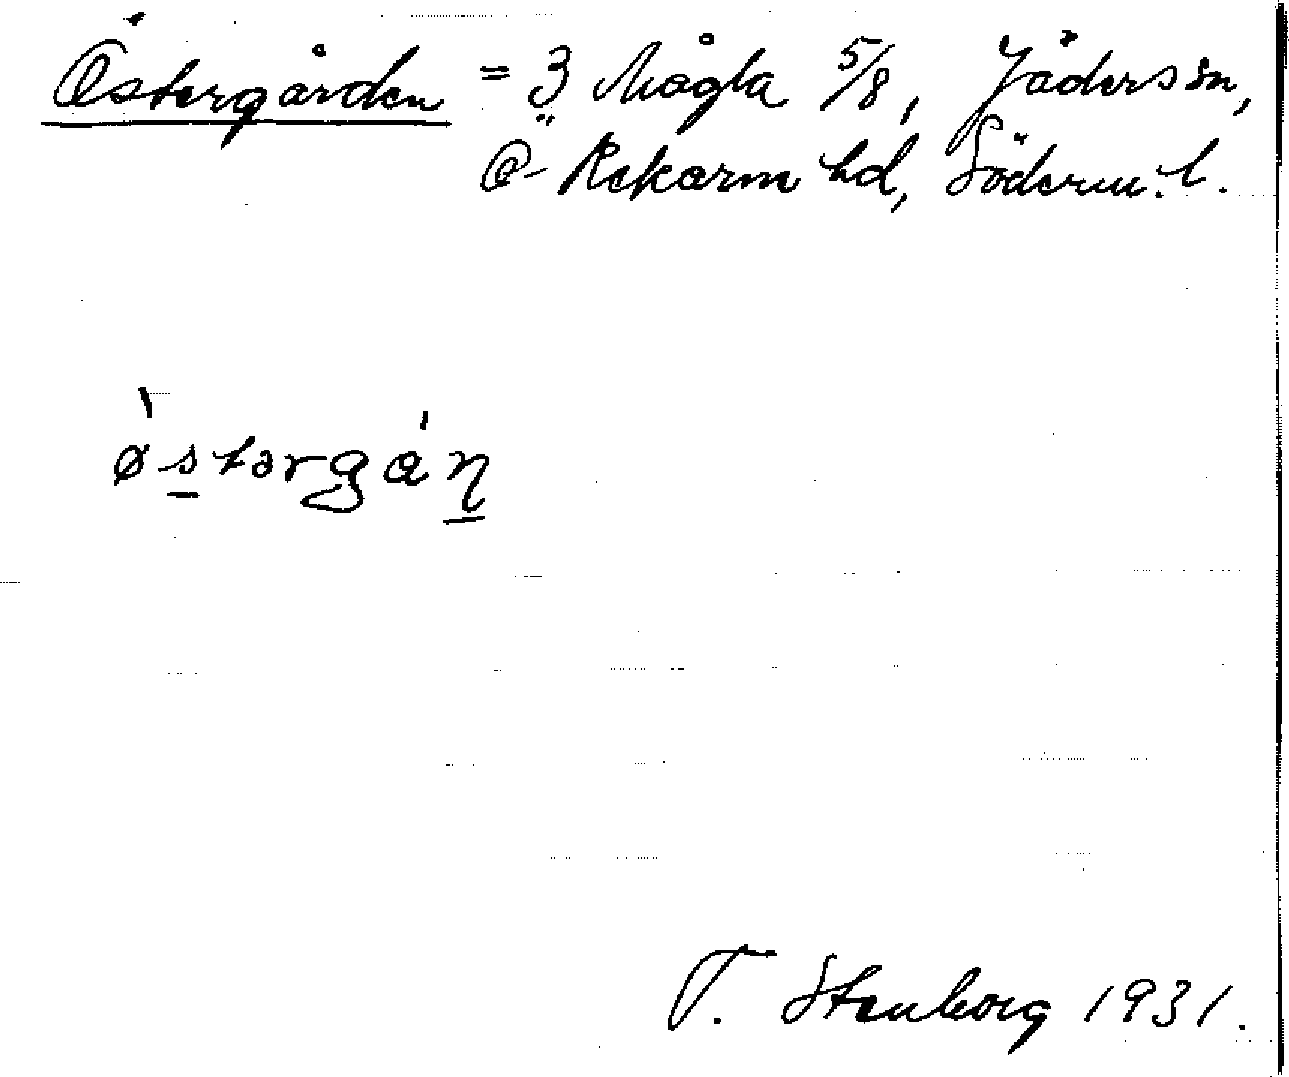 Östergården = 3 Mågla 5/8, Jäders sn,
Ö-Rekarne hd, Söderm. l.
østərgán
T. Stenborg 1931.